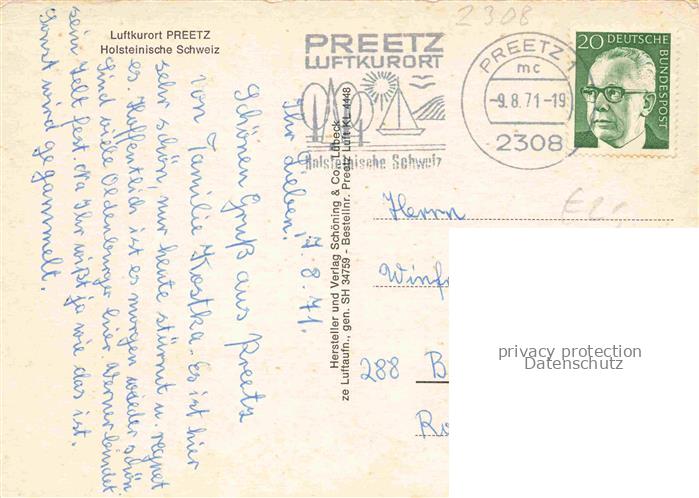 Luftkurort PREETZ
Holsteinische Schweiz
2308
PREETZ
LUFTKURORT
Holsteinische Schweiz
PREETZ 1
mc
-9.8.71-19
2308
20 DEUTSCHE BUNDESPOST
Hersteller und Verlag Schöning & Co., Lübeck
ze Luftaufn., gen. SH 34759 - Bestellnr. Preetz Luft KL 4448
17.8.71.
Ihr Lieben!
Schönen Gruß aus Preetz
von Familie Kostka. Es ist hier
sehr schön, nur heute stürmt u. regnet
es. Hoffentlich ist es morgen wieder schön.
Sind viele Oldenburger hier. Werner bindet
sein Zelt fest. Na Ihr wißt ja wie das ist.
Sonst wird gegammelt.
Herrn
Winf
288 B
privacy protection
Datenschutz